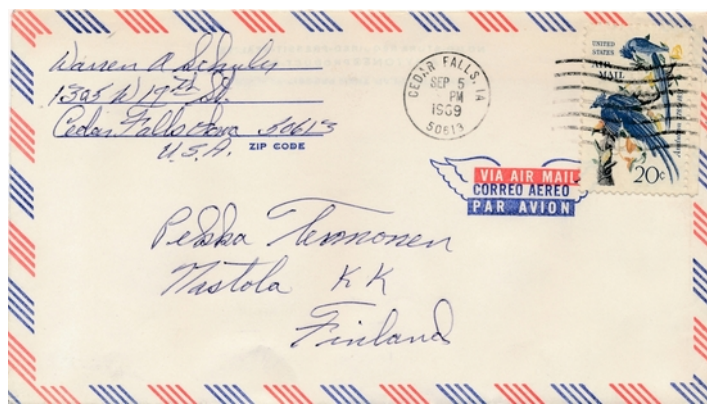 Warren A Schulz
1303 W 19th St.
Cedar Falls Iowa 50613
U.S.A. ZIP CODE
CEDAR FALLS, IA
SEP 5
PM
1969
50613
UNITED
STATES
AIR
MAIL
20c
VIA AIR MAIL
CORREO AEREO
PAR AVION
Pekka
Nastola KK
Finland